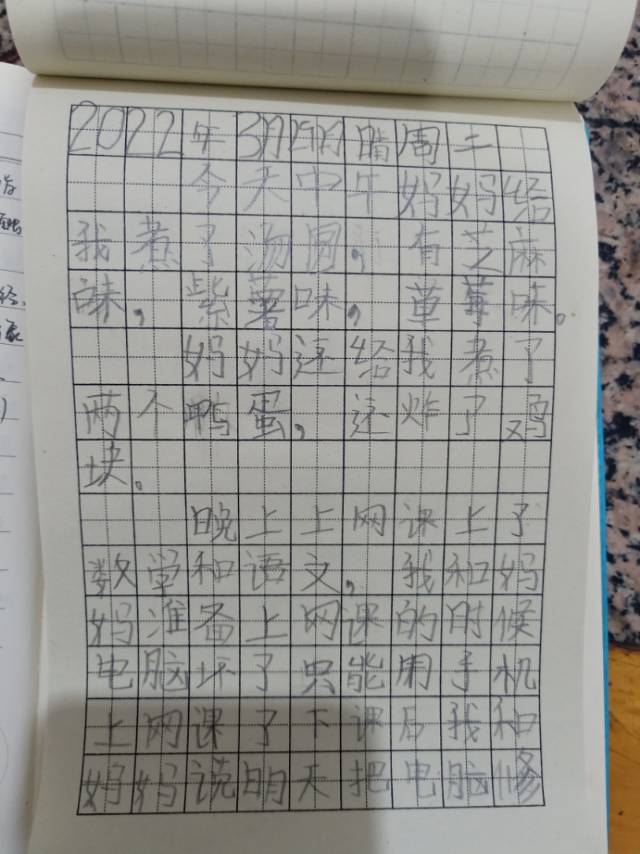 2022年3月29日晴周二
今天中午妈妈给
我煮了汤圆，有芝麻
味，紫薯味，草莓味。
妈妈还给我煮了
两个鸭蛋，还炸了鸡
块。
晚上上网课上了
数学和语文，我和妈
妈准备上网课的时候
电脑坏了只能用手机
上网课了下课后我和
妈妈说明天把电脑修